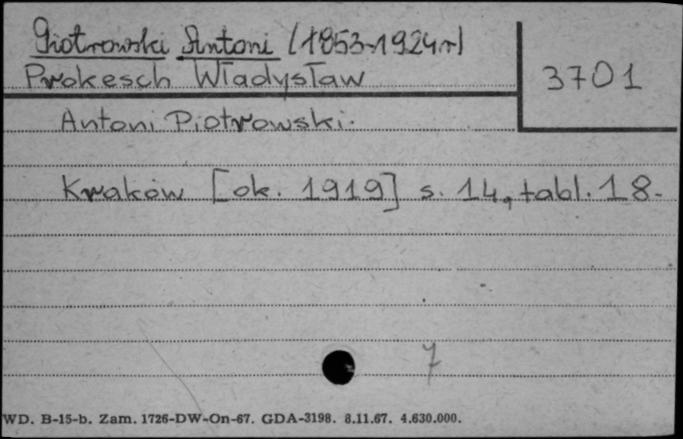 Piotrowski Antoni (1853-1924r)
Prokesch Władysław
3701
Antoni Piotrowski.
Kraków [ok. 1919] s. 14, tabl. 18.
7
WD. B-15-b. Zam. 1726-DW-On-67. GDA-3198. 8.11.67. 4.630.000.